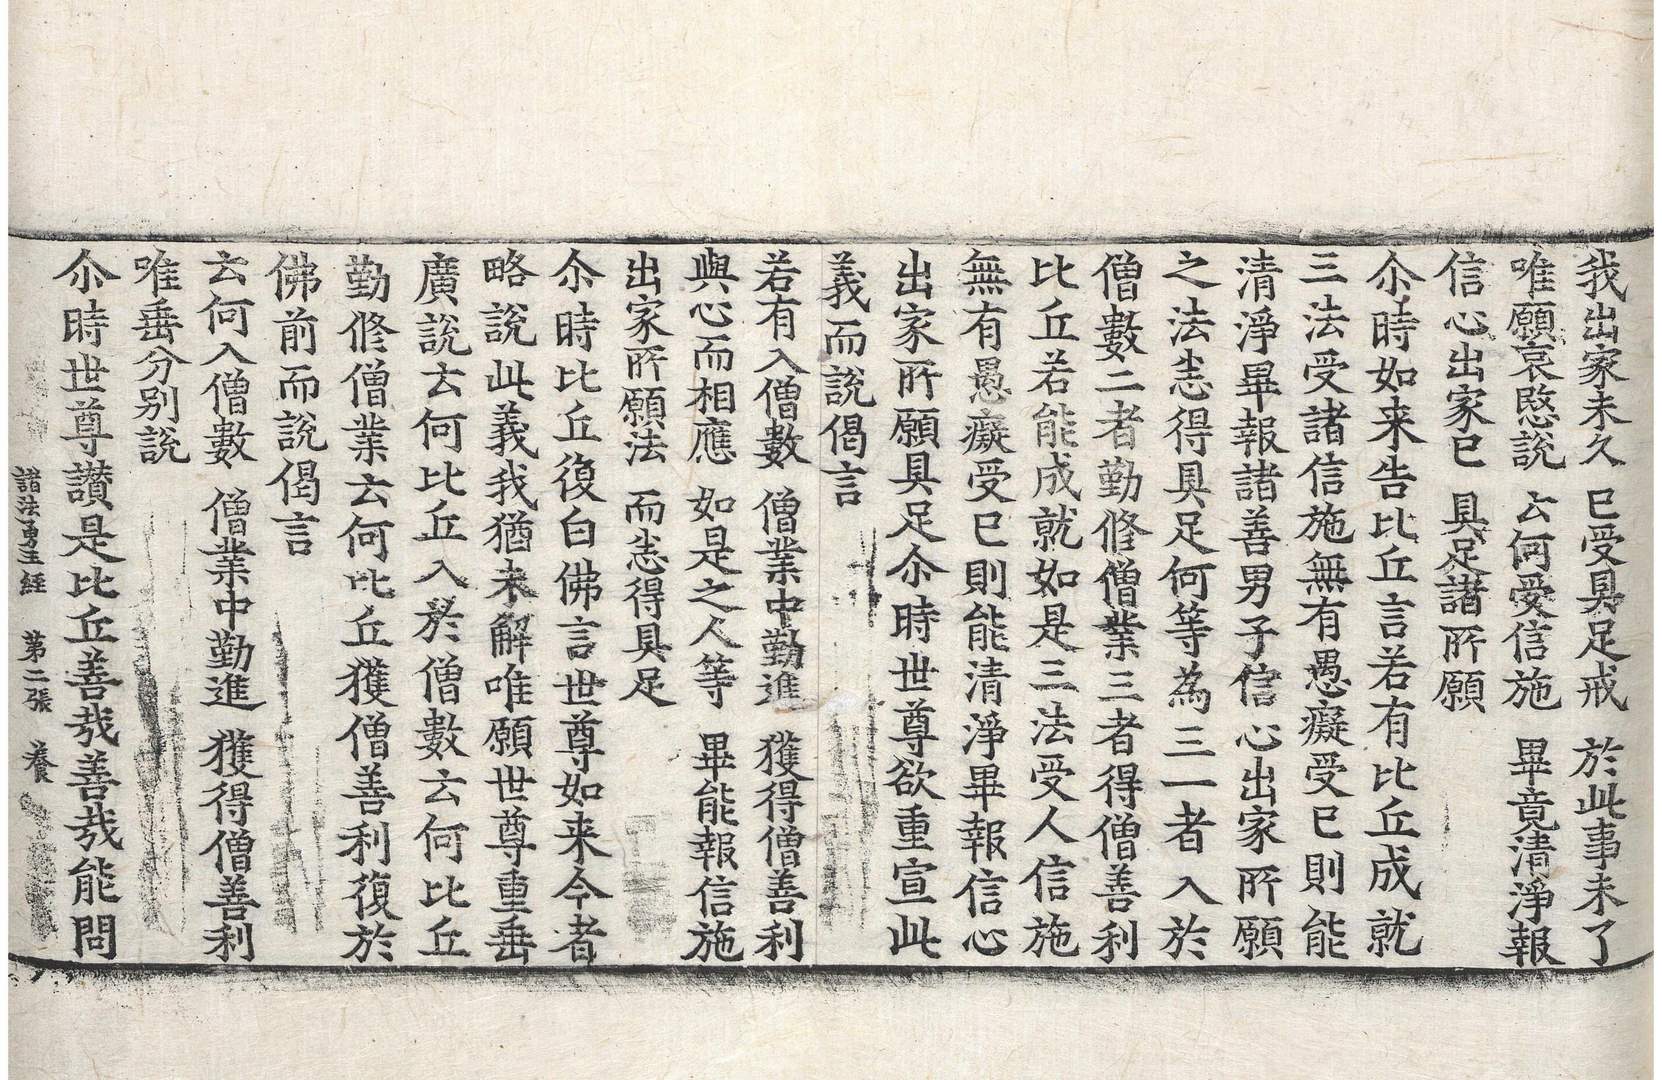 我出家未久　已受具足戒　於此事未了
唯願哀愍說　云何受信施　畢竟清淨報
信心出家已　具足諸所願
尒時如来告比丘言若有比丘成就
三法受諸信施無有愚癡受已則能
清淨畢報諸善男子信心出家所願
之法悉得具足何等為三一者入於
僧數二者勤修僧業三者得僧善利
比丘若能成就如是三法受人信施
無有愚癡受已則能清淨畢報信心
出家所願具足尒時世尊欲重宣此
義而說偈言
若有入僧數　僧業中勤進　獲得僧善利
與心而相應　如是之人等　畢能報信施
出家所願法　而悉得具足
尒時比丘復白佛言世尊如来今者
略說此義我猶未解唯願世尊重垂
廣說云何比丘入於僧數云何比丘
勤修僧業云何比丘獲僧善利復於
佛前而說偈言
云何入僧數　僧業中勤進　獲得僧善利
唯垂分別說
尒時世尊讃是比丘善哉善哉能問
諸法勇王經　第二張　養